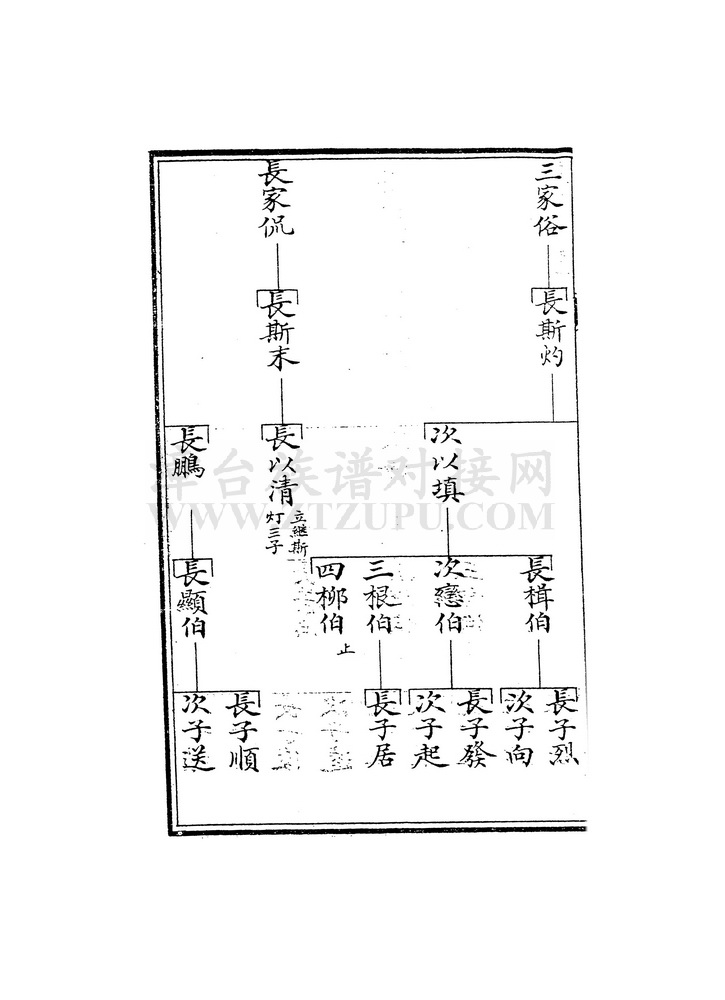 三家俗
長家侃
長斯灼
長斯末
次以填
長以清
立繼斯
灯三子
長鵬
長楫伯
次戀伯
三根伯
四柳伯
止
長顯伯
長子烈
次子向
長子發
次子起
長子居
長子順
次子送
族谱对接网
WWW.ZTZUPU.COM